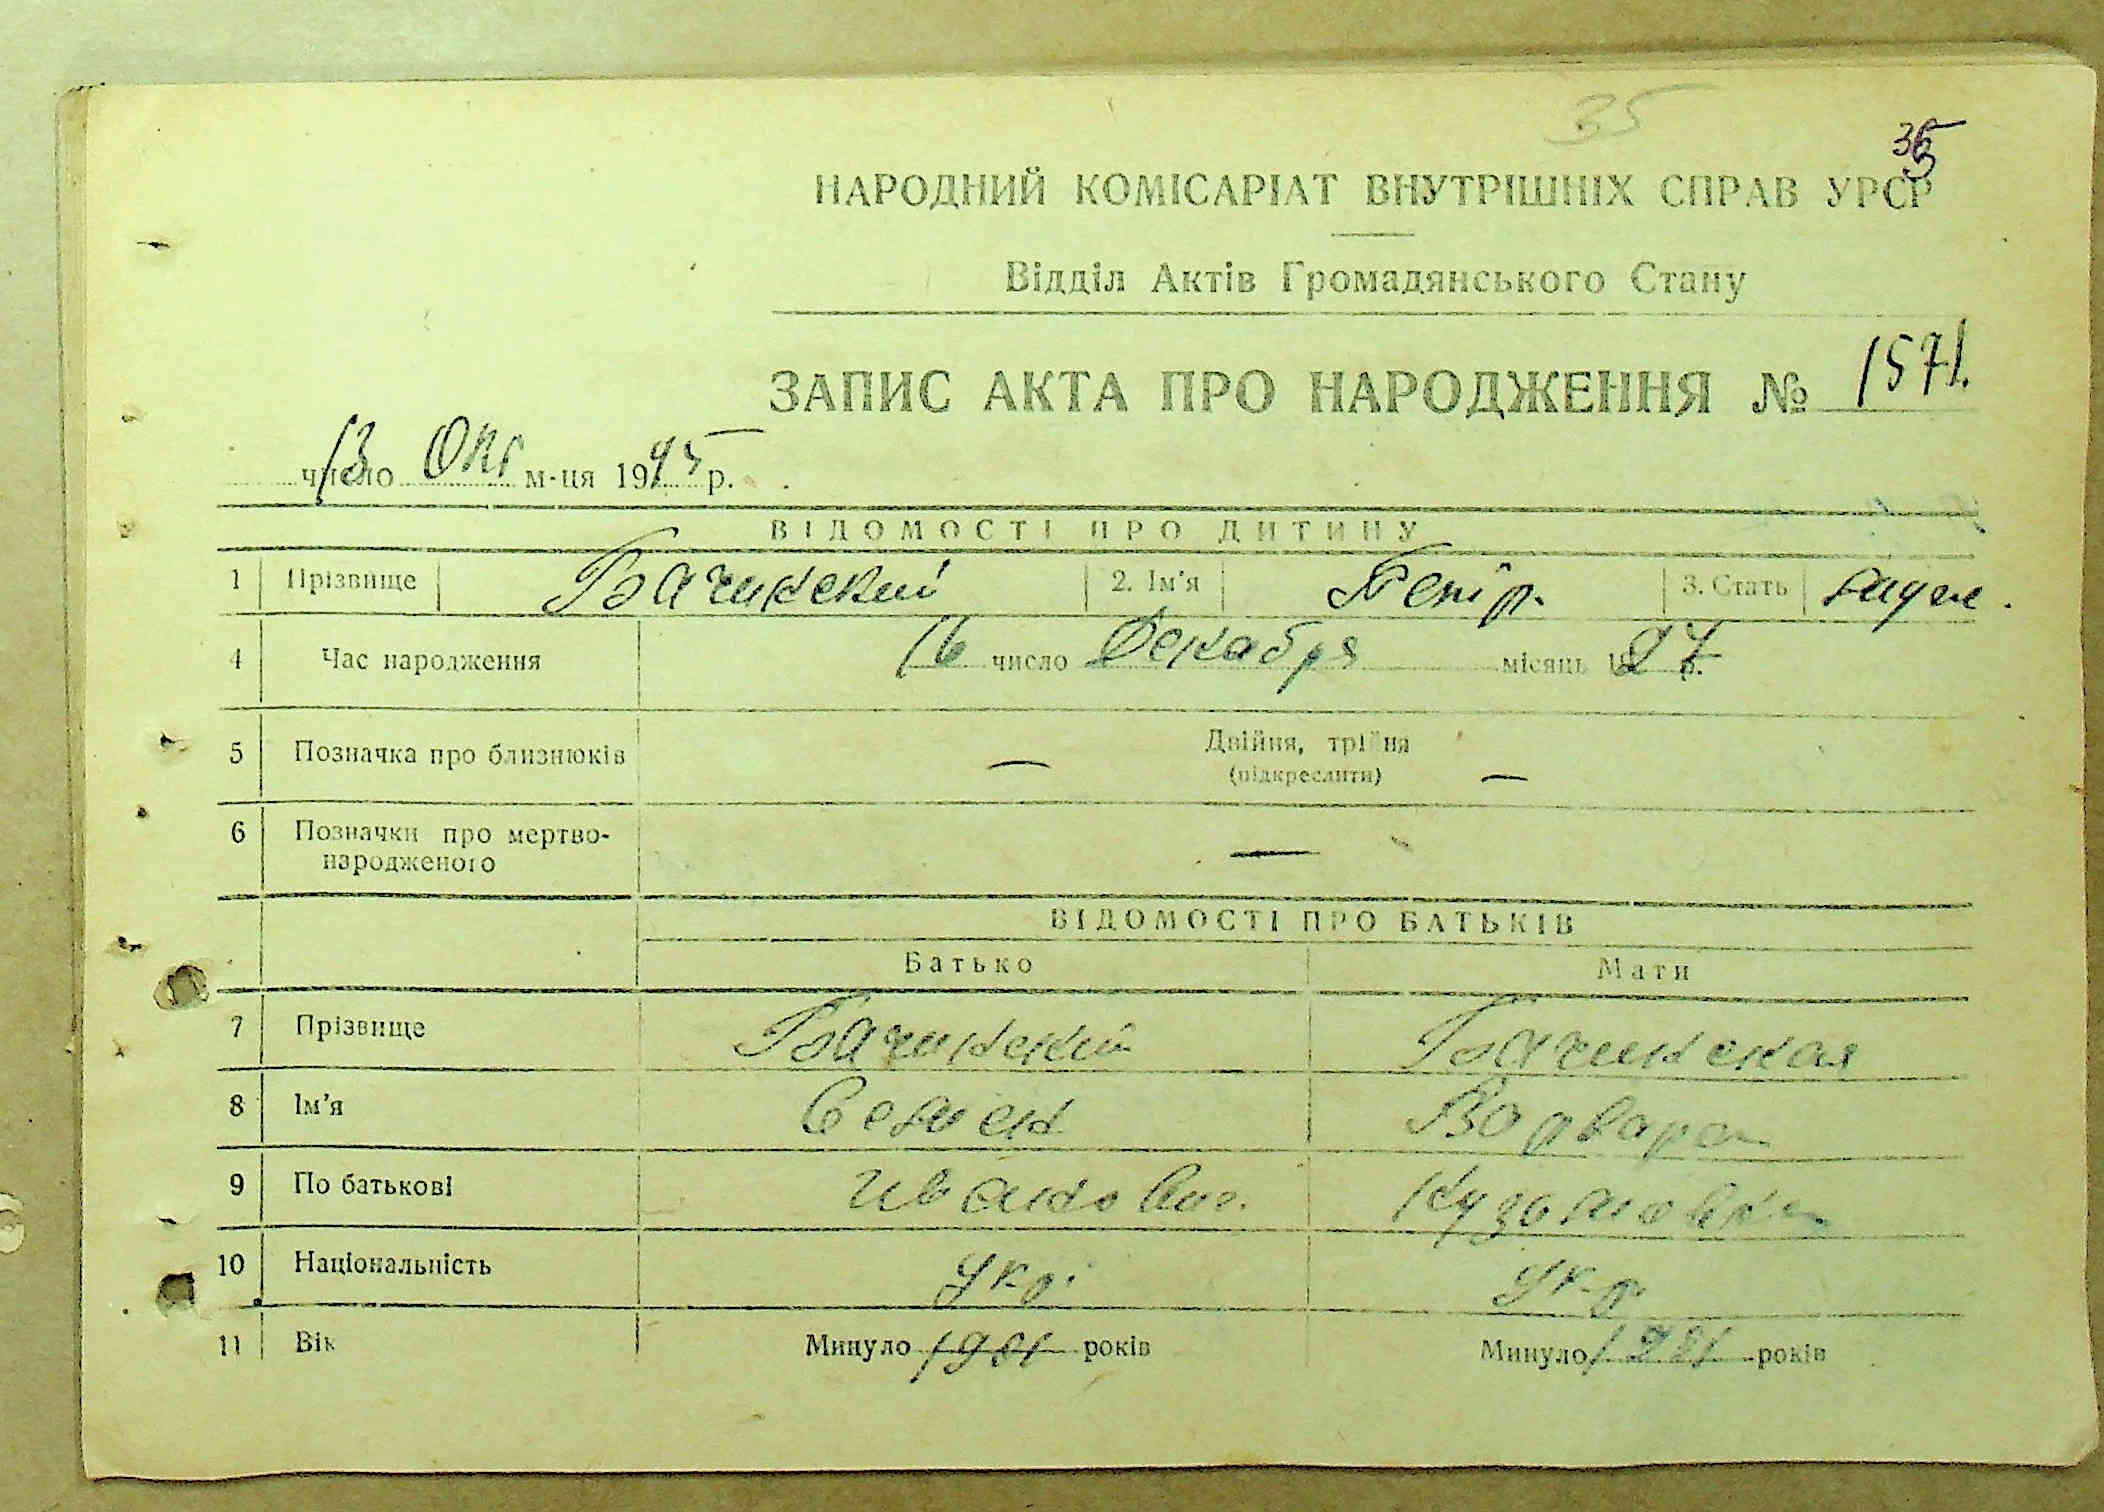 35
35
НАРОДНИЙ КОМІСАРІАТ ВНУТРІШНІХ СПРАВ УРСР
Відділ Актів Громадянського Стану
ЗАПИС АКТА ПРО НАРОДЖЕННЯ № 1571.
13 число Окт м-ця 1945 р.
ВІДОМОСТІ ПРО ДИТИНУ
1 Прізвище Бачинский 2. Ім'я Петр. 3. Стать
4 Час народження 16 число Декабря місяць 1927 р.
5 Позначка про близнюків — Двійня, трійня —
(підкреслити)
6 Позначки про мертво-
народженого —
ВІДОМОСТІ ПРО БАТЬКІВ
Батько Мати
7 Прізвище Бачинский Бачинская
8 Ім'я Семен Варвара
9 По батькові Иванович. Кузьмовна
10 Національність Укр. Укр.
11 Вік Минуло років Минуло років